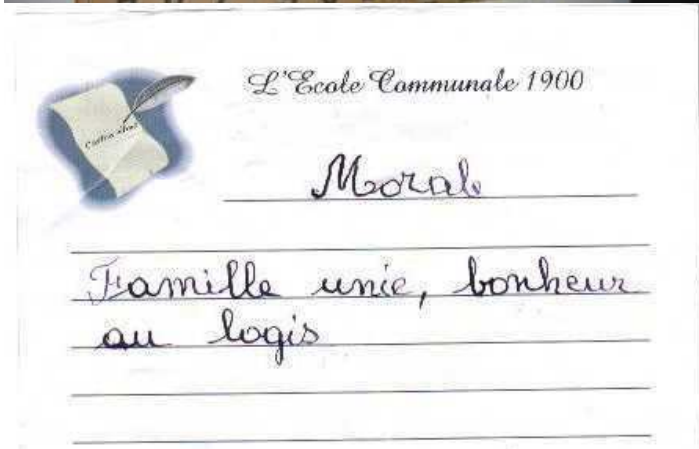 L'Ecole Communale 1900
Morale
Famille unie, bonheur
au logis